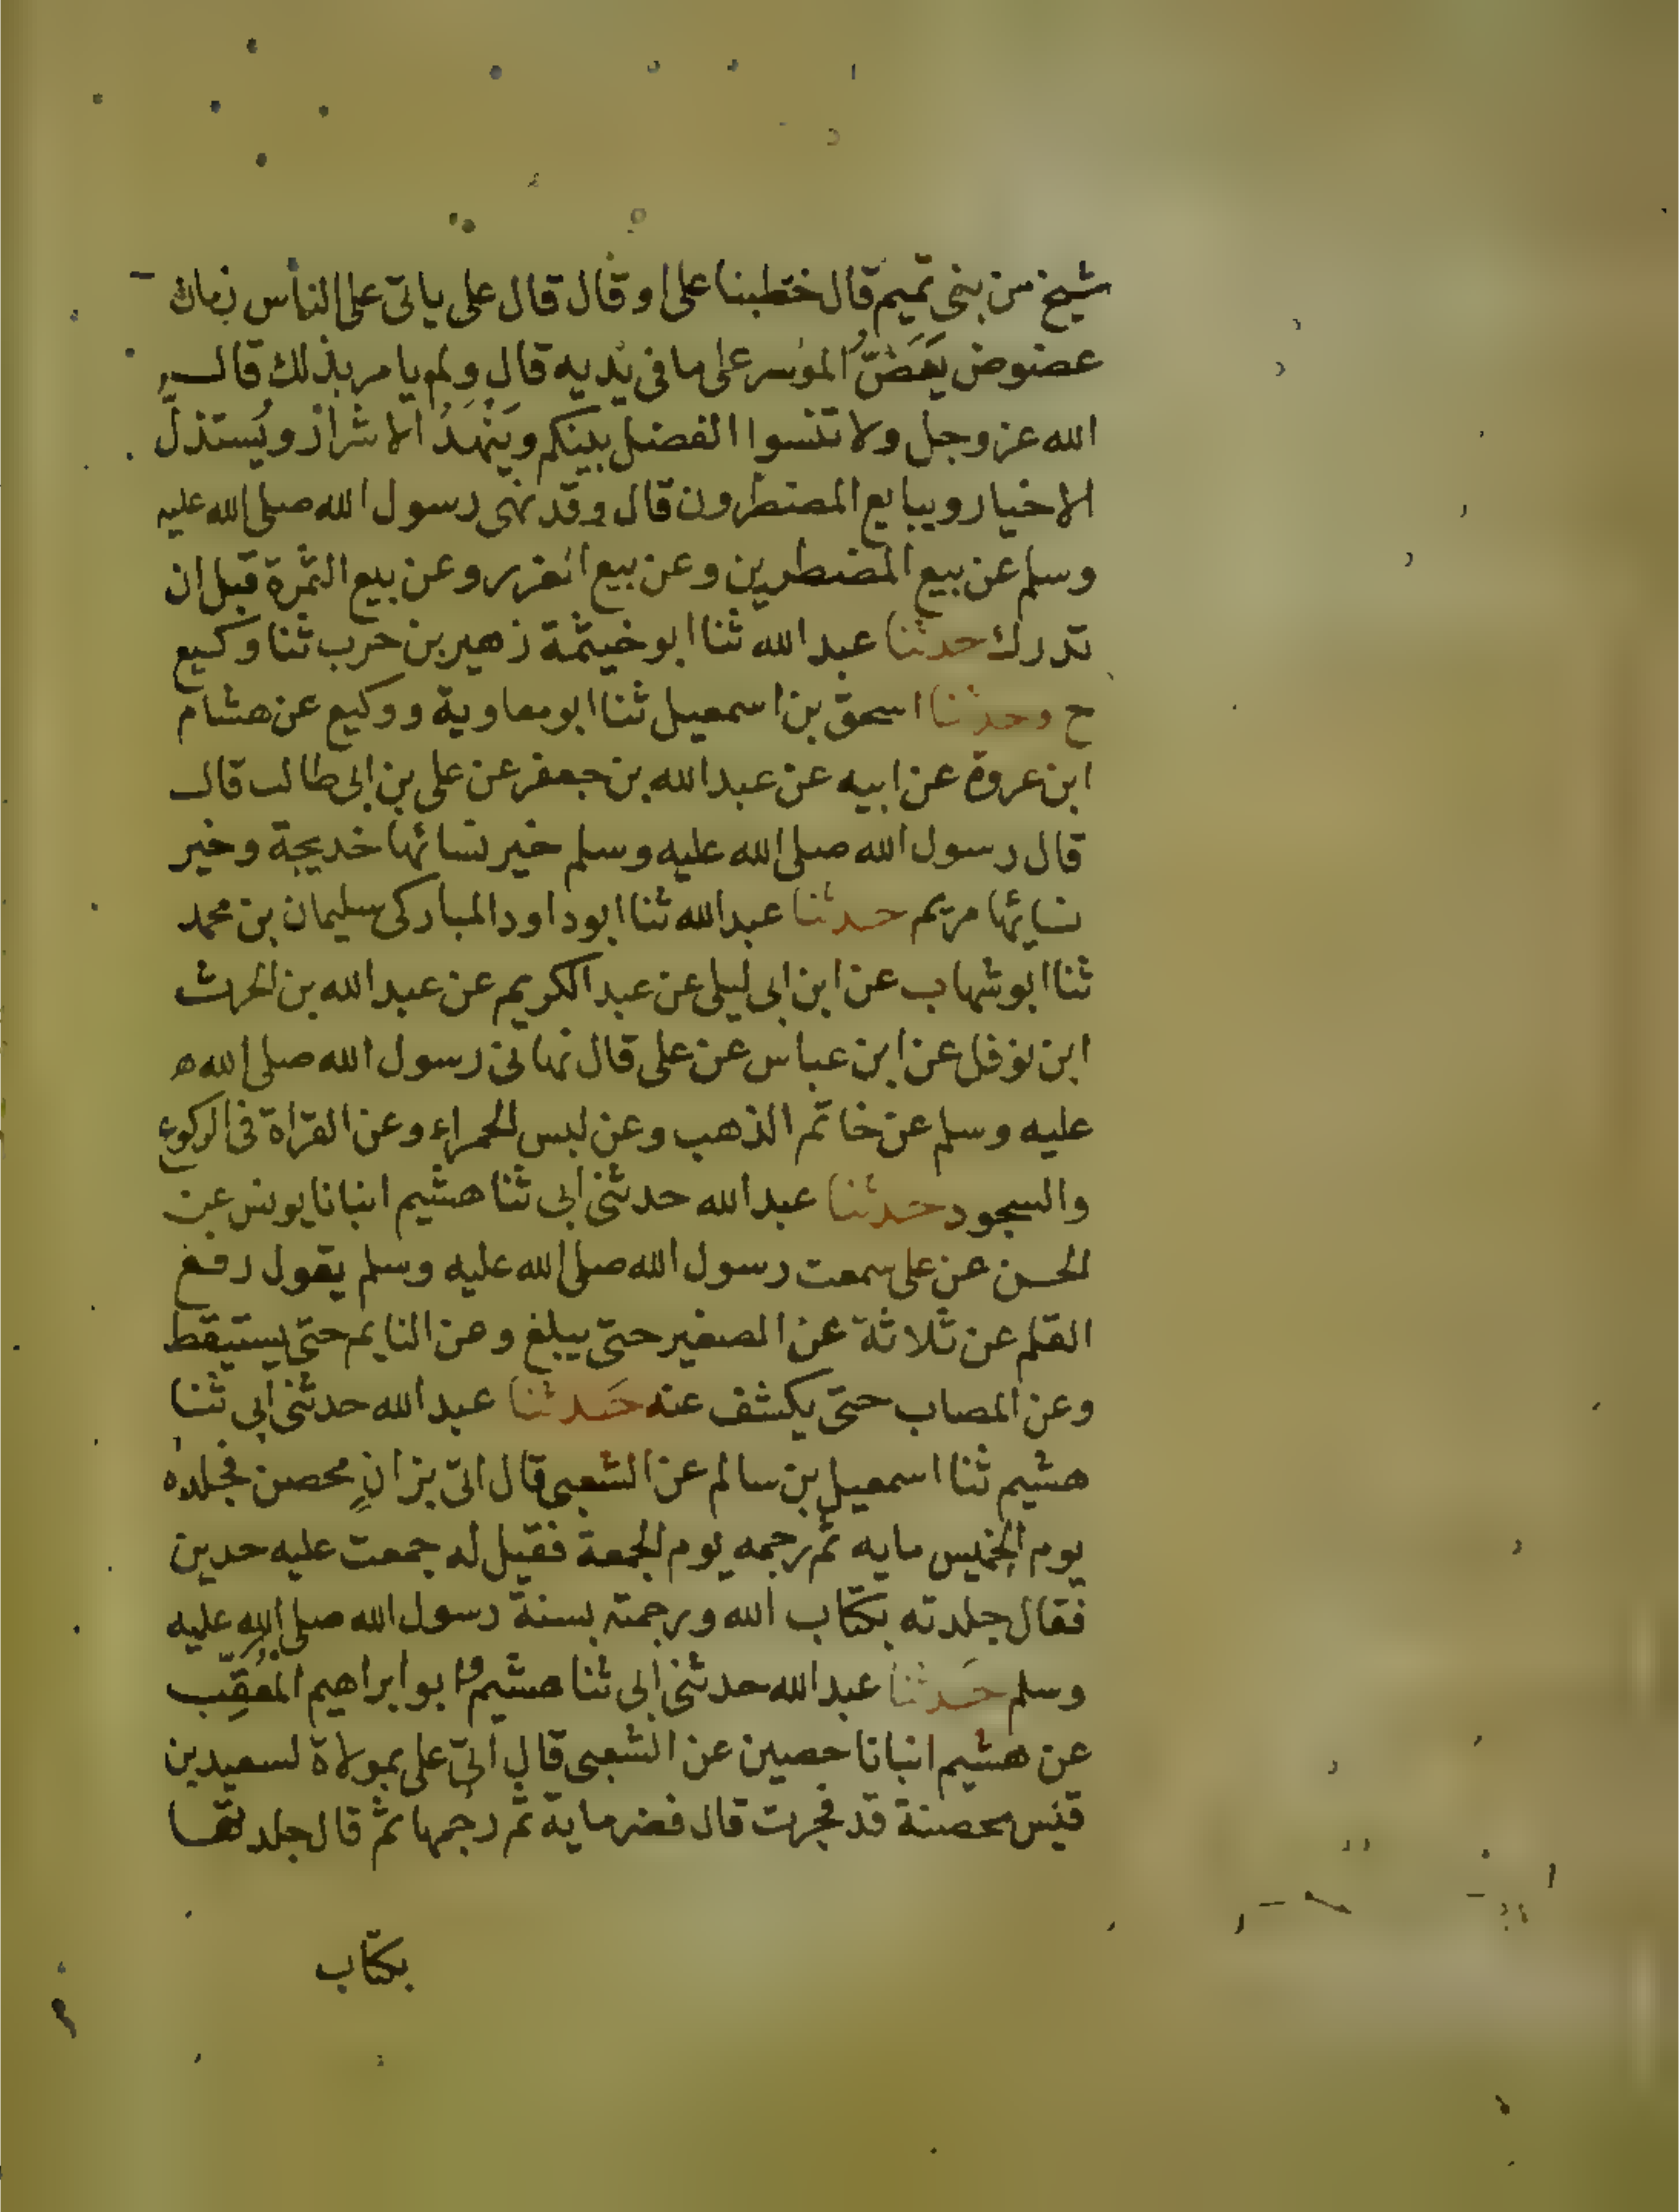 شيخ من بنى تميم قال خطبنا على او قال قال على ياتى على الناس زمان
عضوض يَعَضُّ الموسر على ما فى يديه قال ولم يامر بذلك قال
الله عز وجل ولا تنسوا الفضل بينكم وَيَنْهَدُ الاشرار ويُستذلّ
الاخيار ويبايع المضطرون قال وقد نهى رسول الله صلى الله عليه
وسلم عن بيع المضطرين وعن بيع الغرر وعن بيع الثمرة قبل ان
تدرك حدثنا عبد الله ثنا ابو خيثمة زهير بن حرب ثنا وكيع
ح وحدثنا اسحق بن اسمعيل ثنا ابو معاوية ووكيع عن هشام
ابن عروة عن ابيه عن عبد الله بن جعفر عن على بن ابى طالب قال
قال رسول الله صلى الله عليه وسلم خير نسائها خديجة وخير
نسائها مريم حدثنا عبد الله ثنا ابو داود المباركى سليمان بن محمد
ثنا ابو شهاب عن ابن ابى ليلى عن عبد الكريم عن عبد الله بن الحرث
ابن نوفل عن ابن عباس عن على قال نهانى رسول الله صلى الله ه
عليه وسلم عن خاتم الذهب وعن لبس الحمراء وعن القراة فى الركوع
والسجود حدثنا عبد الله حدثنى ابى ثنا هشيم انبانا يونس عن
الحسن عن على سمعت رسول الله صلى الله عليه وسلم يقول رفع
القلم عن ثلاثة عن الصغير حتى يبلغ وعن النايم حتى يستيقظ
وعن المصاب حتى يكشف عنه حَدثنا عبد الله حدثنى ابى ثنا
هشيم ثنا اسمعيل بن سالم عن الشعبى قال اتى بزانٍ محصن فجلده
يوم الخميس مايه ثم رجمه يوم الجمعة فقيل له جمعت عليه حدين
فقال جلدته بكتاب الله ورجمته بسنة رسول الله صلى الله عليه
وسلم حَدثنا عبد الله حدثنى ابى ثنا هشيم وابو ابراهيم المُعَقِّب
عن هشيم انبانا حصين عن الشعبى قال اتى على بمولاة لسعيد بن
قيس محصنة قد فجرت قال فضر مايه ثم رجمها ثم قال جلدتها
بكتاب